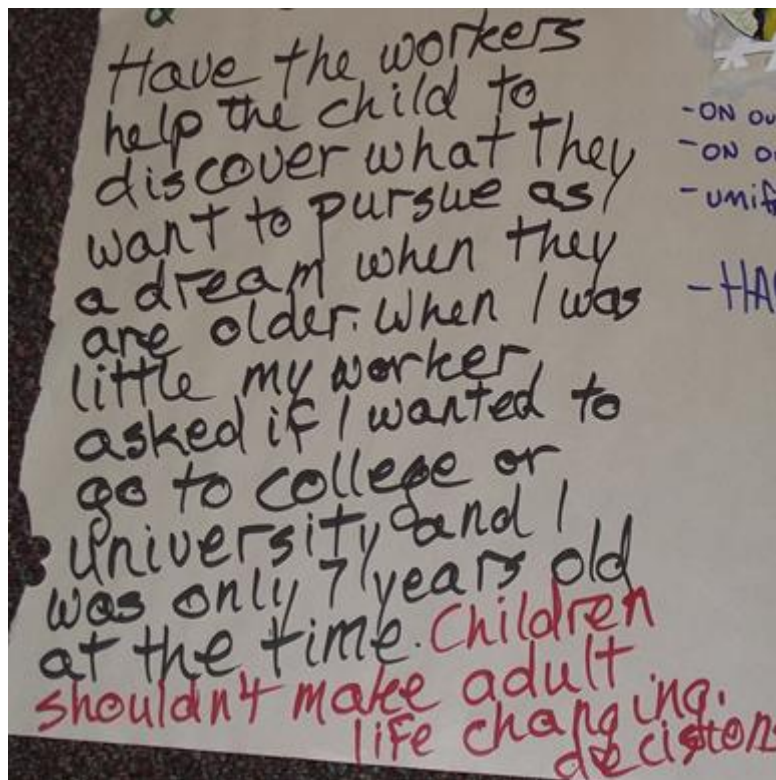 Have the workers
help the child to
discover what they
want to pursue as
a dream when they
are older. When I was
little my worker
asked if I wanted to
go to college or
university and I
was only 7 years old
at the time. Children
shouldn't make adult
life changing.
decision
- ON
- ON
-
- HA